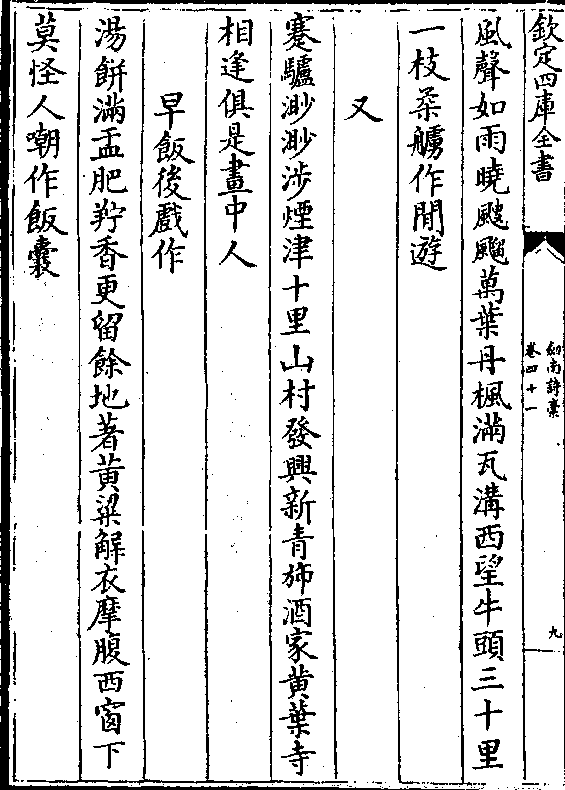 欽定四庫全書
劍南詩藁
卷四十一
九
風聲如雨曉颼飀萬葉丹楓滿瓦溝西望牛頭三十里
一枝柔艣作閒遊
又
蹇驢渺渺涉煙津十里山村發興新青斾酒家黄葉寺
相逢俱是畫中人
早飯後戲作
湯餅滿盂肥羜香更留餘地著黄粱解衣摩腹西窗下
莫怪人嘲作飯囊